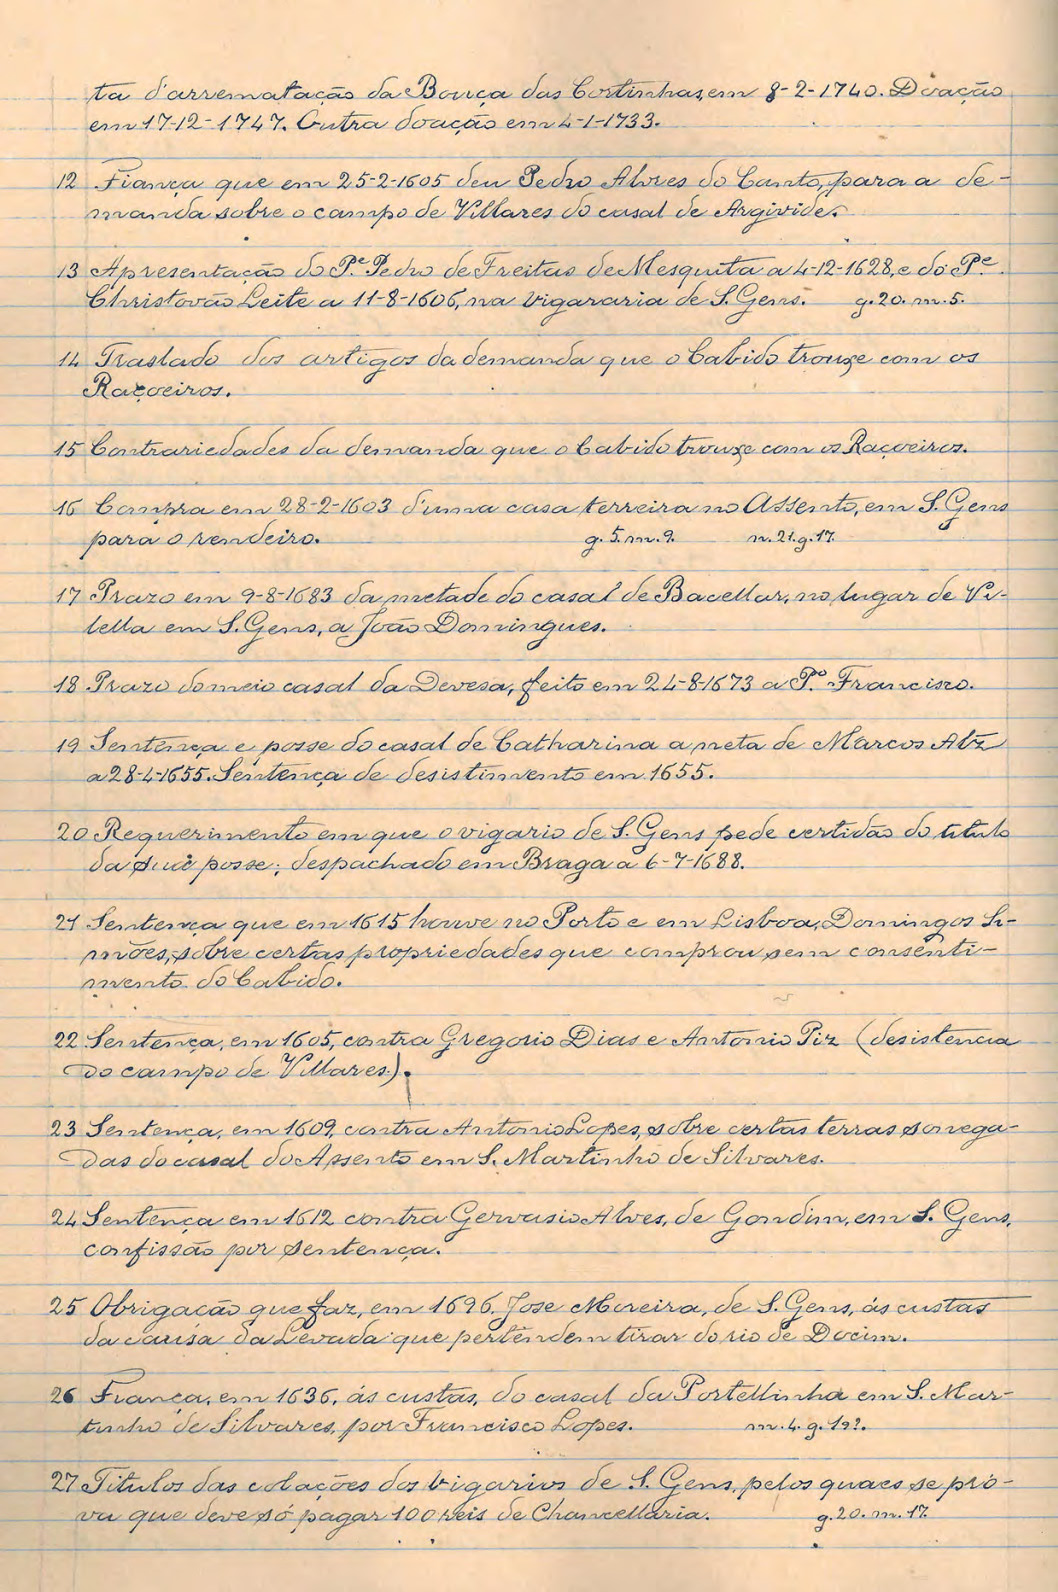 ta d'arrematação da Bouça das Cortinhas, em 8-2-1740. Doação
em 17-12-1747. Outra doação em 4-1-1733.
12 Fiança que em 25-2-1605 deu Pedro Alvres do Canto, para a de-
manda sobre o campo de Villares do casal de Argivide.
13 Apresentação do P.e Pedro de Freitas de Mesquita a 4-12-1628, e do P.e
Christovão Leite a 11-8-1606, na vigararia de S. Gens. g. 20. m. 5.
14 Traslado dos artigos da demanda que o Cabido trouxe com os
Raçoeiros.
15 Contrariedades da demanda que o Cabido trouxe com os Raçoeiros.
16 Compra em 28-2-1603 d'uma casa terreira no Assento, em S. Gens
para o rendeiro. g. 5. m. 9. m. 21. g. 17.
17 Prazo em 9-8-1683 da metade do casal de Bacellar, no lugar de Vi-
lella em S. Gens, a João Domingues.
18 Prazo do meio casal da Devesa, feito em 24-8-1673 a P.o Francisco.
19 Sentença e posse do casal de Catharina a preta de Marcos Alz
a 28-4-1655. Sentença de desistimento em 1655.
20 Requerimento em que o vigario de S. Gens pede certidão do titulo
da sua posse; despachado em Braga a 6-7-1688.
21 Sentença que em 1615 houve no Porto e em Lisboa, Domingos Si-
mões, sobre certas propriedades que comprou sem consenti-
mento do Cabido.
22 Sentença, em 1605, contra Gregorio Dias e Antonio Piz (desistencia
do campo de Villares).
23 Sentença, em 1609, contra Antonio Lopes, sobre certas terras sonega-
das do casal do Assento em S. Martinho de Silvares.
24 Sentença em 1612 contra Gervasio Alves, de Gondim, em S. Gens,
confissão por sentença.
25 Obrigação que faz, em 1696, Jose Moreira, de S. Gens, ás custas
da causa da Levada que pertendem tirar do rio de Docim.
26 Fiança, em 1636, ás custas, do casal da Portellinha em S. Mar-
tinho de Silvares, por Francisco Lopes. m. 4. g. 19?.
27 Titulos das colações dos vigarios de S. Gens, pelos quaes se pro-
va que deve só pagar 100 reis de Chancellaria. g. 20. m. 17.